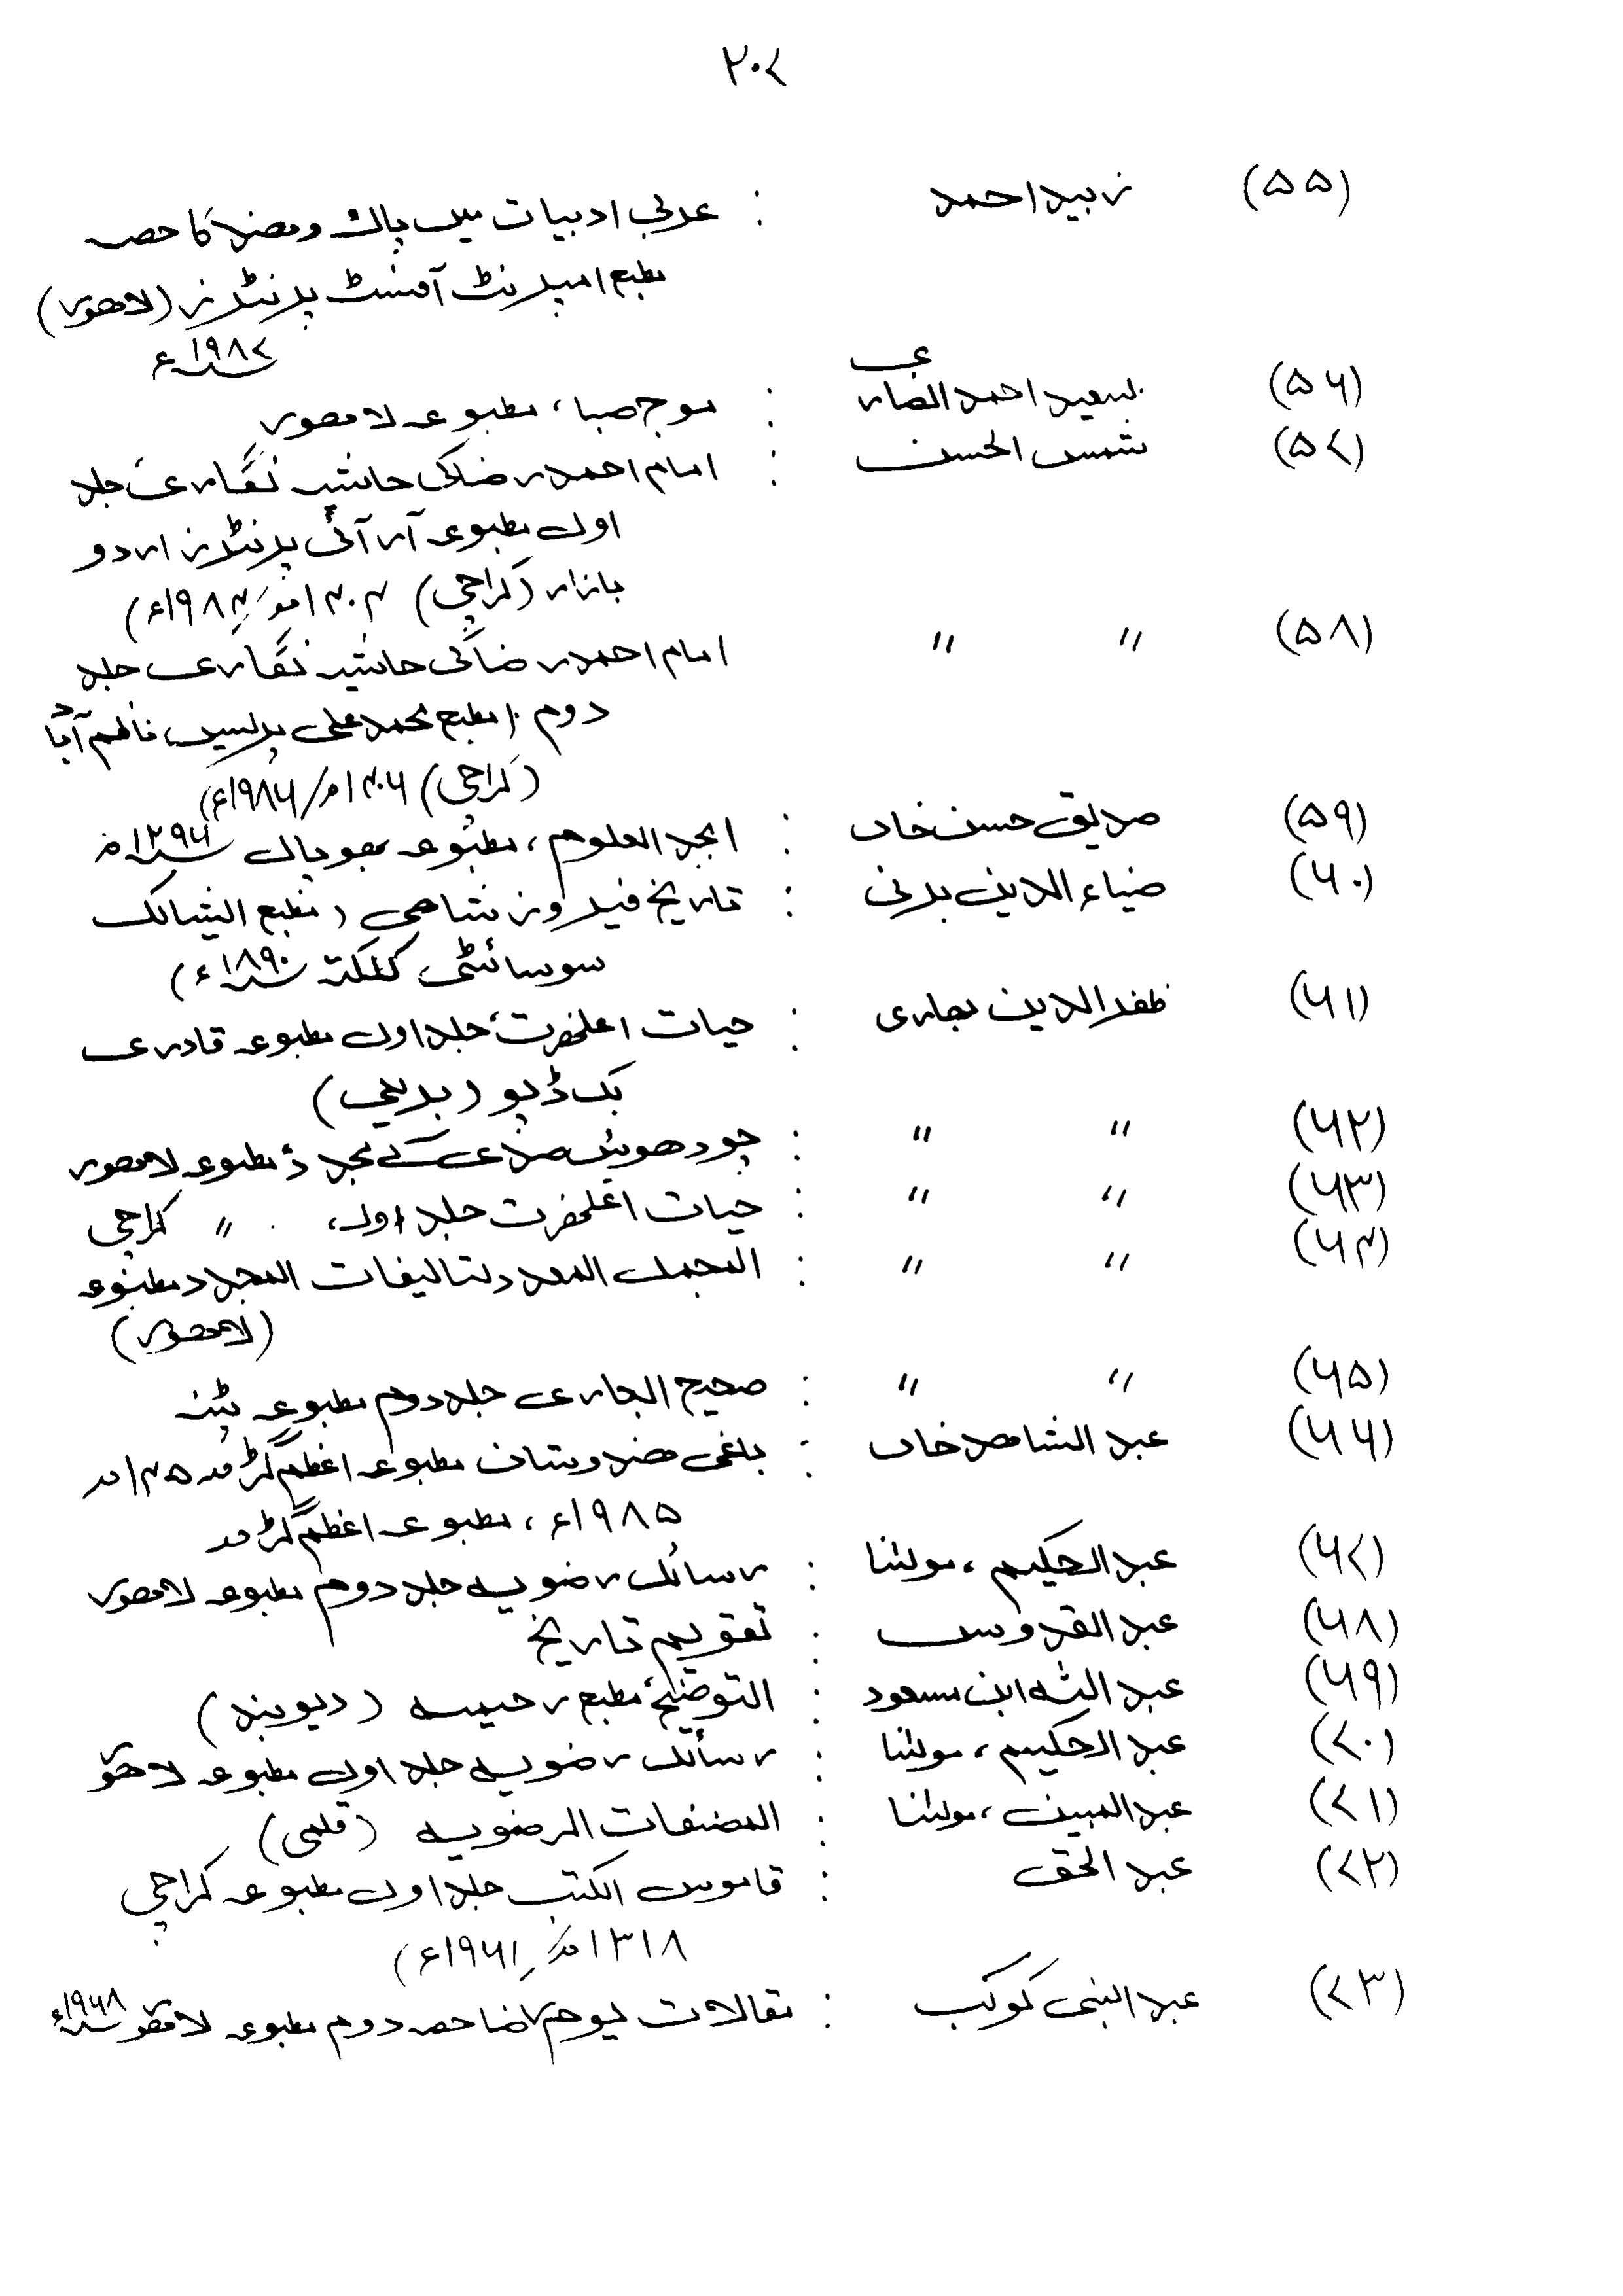 ۲۰۷
(۵۵) زبید احمد : عربی ادبیات میں پاک و ہند کا حصہ
مطبع امپرنٹ آفسٹ پرنٹرز (لاھور)
سنہ ۱۹۸۷ء
(۵۶) سعید احمد انصاری : موج صبا، مطبوعہ لاھور
(۵۷) شمس الحسن : امام احمد رضا کی حاشیہ نگاری جلد
اول مطبوعہ آر آئی پرنٹرز اردو
بازار (کراچی) ۱۴۰۴ھ/۱۹۸۴ء)
(۵۸) " " امام احمد رضا کی حاشیہ نگاری جلد
دوم (مطبع محمد علی پریس، ناظم آباد
(کراچی) ۱۴۰۶ھ/۱۹۸۶ء)
(۵۹) صدیق حسن خاں : ابجد العلوم، مطبوعہ بھوپال سنہ ۱۲۹۶ھ
(۶۰) ضیاء الدین برنی : تاریخ فیروز شاھی (مطبع ایشیاٹک
سوسائٹی کلکتہ سنہ ۱۸۹۰ء)
(۶۱) ظفر الدین بہاری : حیات اعلحضرت، جلد اول مطبوعہ قادری
بک ڈپو (بریلی)
(۶۲) " " : چودھویں صدی کے مجدد، مطبوعہ لاھور
(۶۳) " " : حیات اعلحضرت جلد اول، " کراچی
(۶۴) " " : المجمل المعدد لتالیفات المجدد مطبوعہ
(لاھور)
(۶۵) " " : صحیح البہاری جلد دوم مطبوعہ پٹنہ
(۶۶) عبد الشاھد خاں : باغی ھندوستان مطبوعہ اعظم گڑھ ۱۴۰۵ھ
۱۹۸۵ء، مطبوعہ اعظم گڑھ
(۶۷) عبد الحکیم، مولٰنا : رسائل رضویہ جلد دوم مطبوعہ لاھور
(۶۸) عبد القدوس : تقویم تاریخ
(۶۹) عبد اللہ ابن مسعود : التوضیح، مطبع رحیمیہ (دیوبند)
(۷۰) عبد الحکیم، مولٰنا : رسائل رضویہ جلد اول مطبوعہ لاھور
(۷۱) عبد المبین، مولٰنا : المصنفات الرضویہ (قلمی)
(۷۲) عبد الحق : قاموس الکتب جلد اول مطبوعہ کراچی
۱۳۱۸ھ/۱۹۶۱ء)
(۷۳) عبد النبی کوکب : مقالات یوم رضا حصہ دوم مطبوعہ لاھور سنہ ۱۹۶۸ء